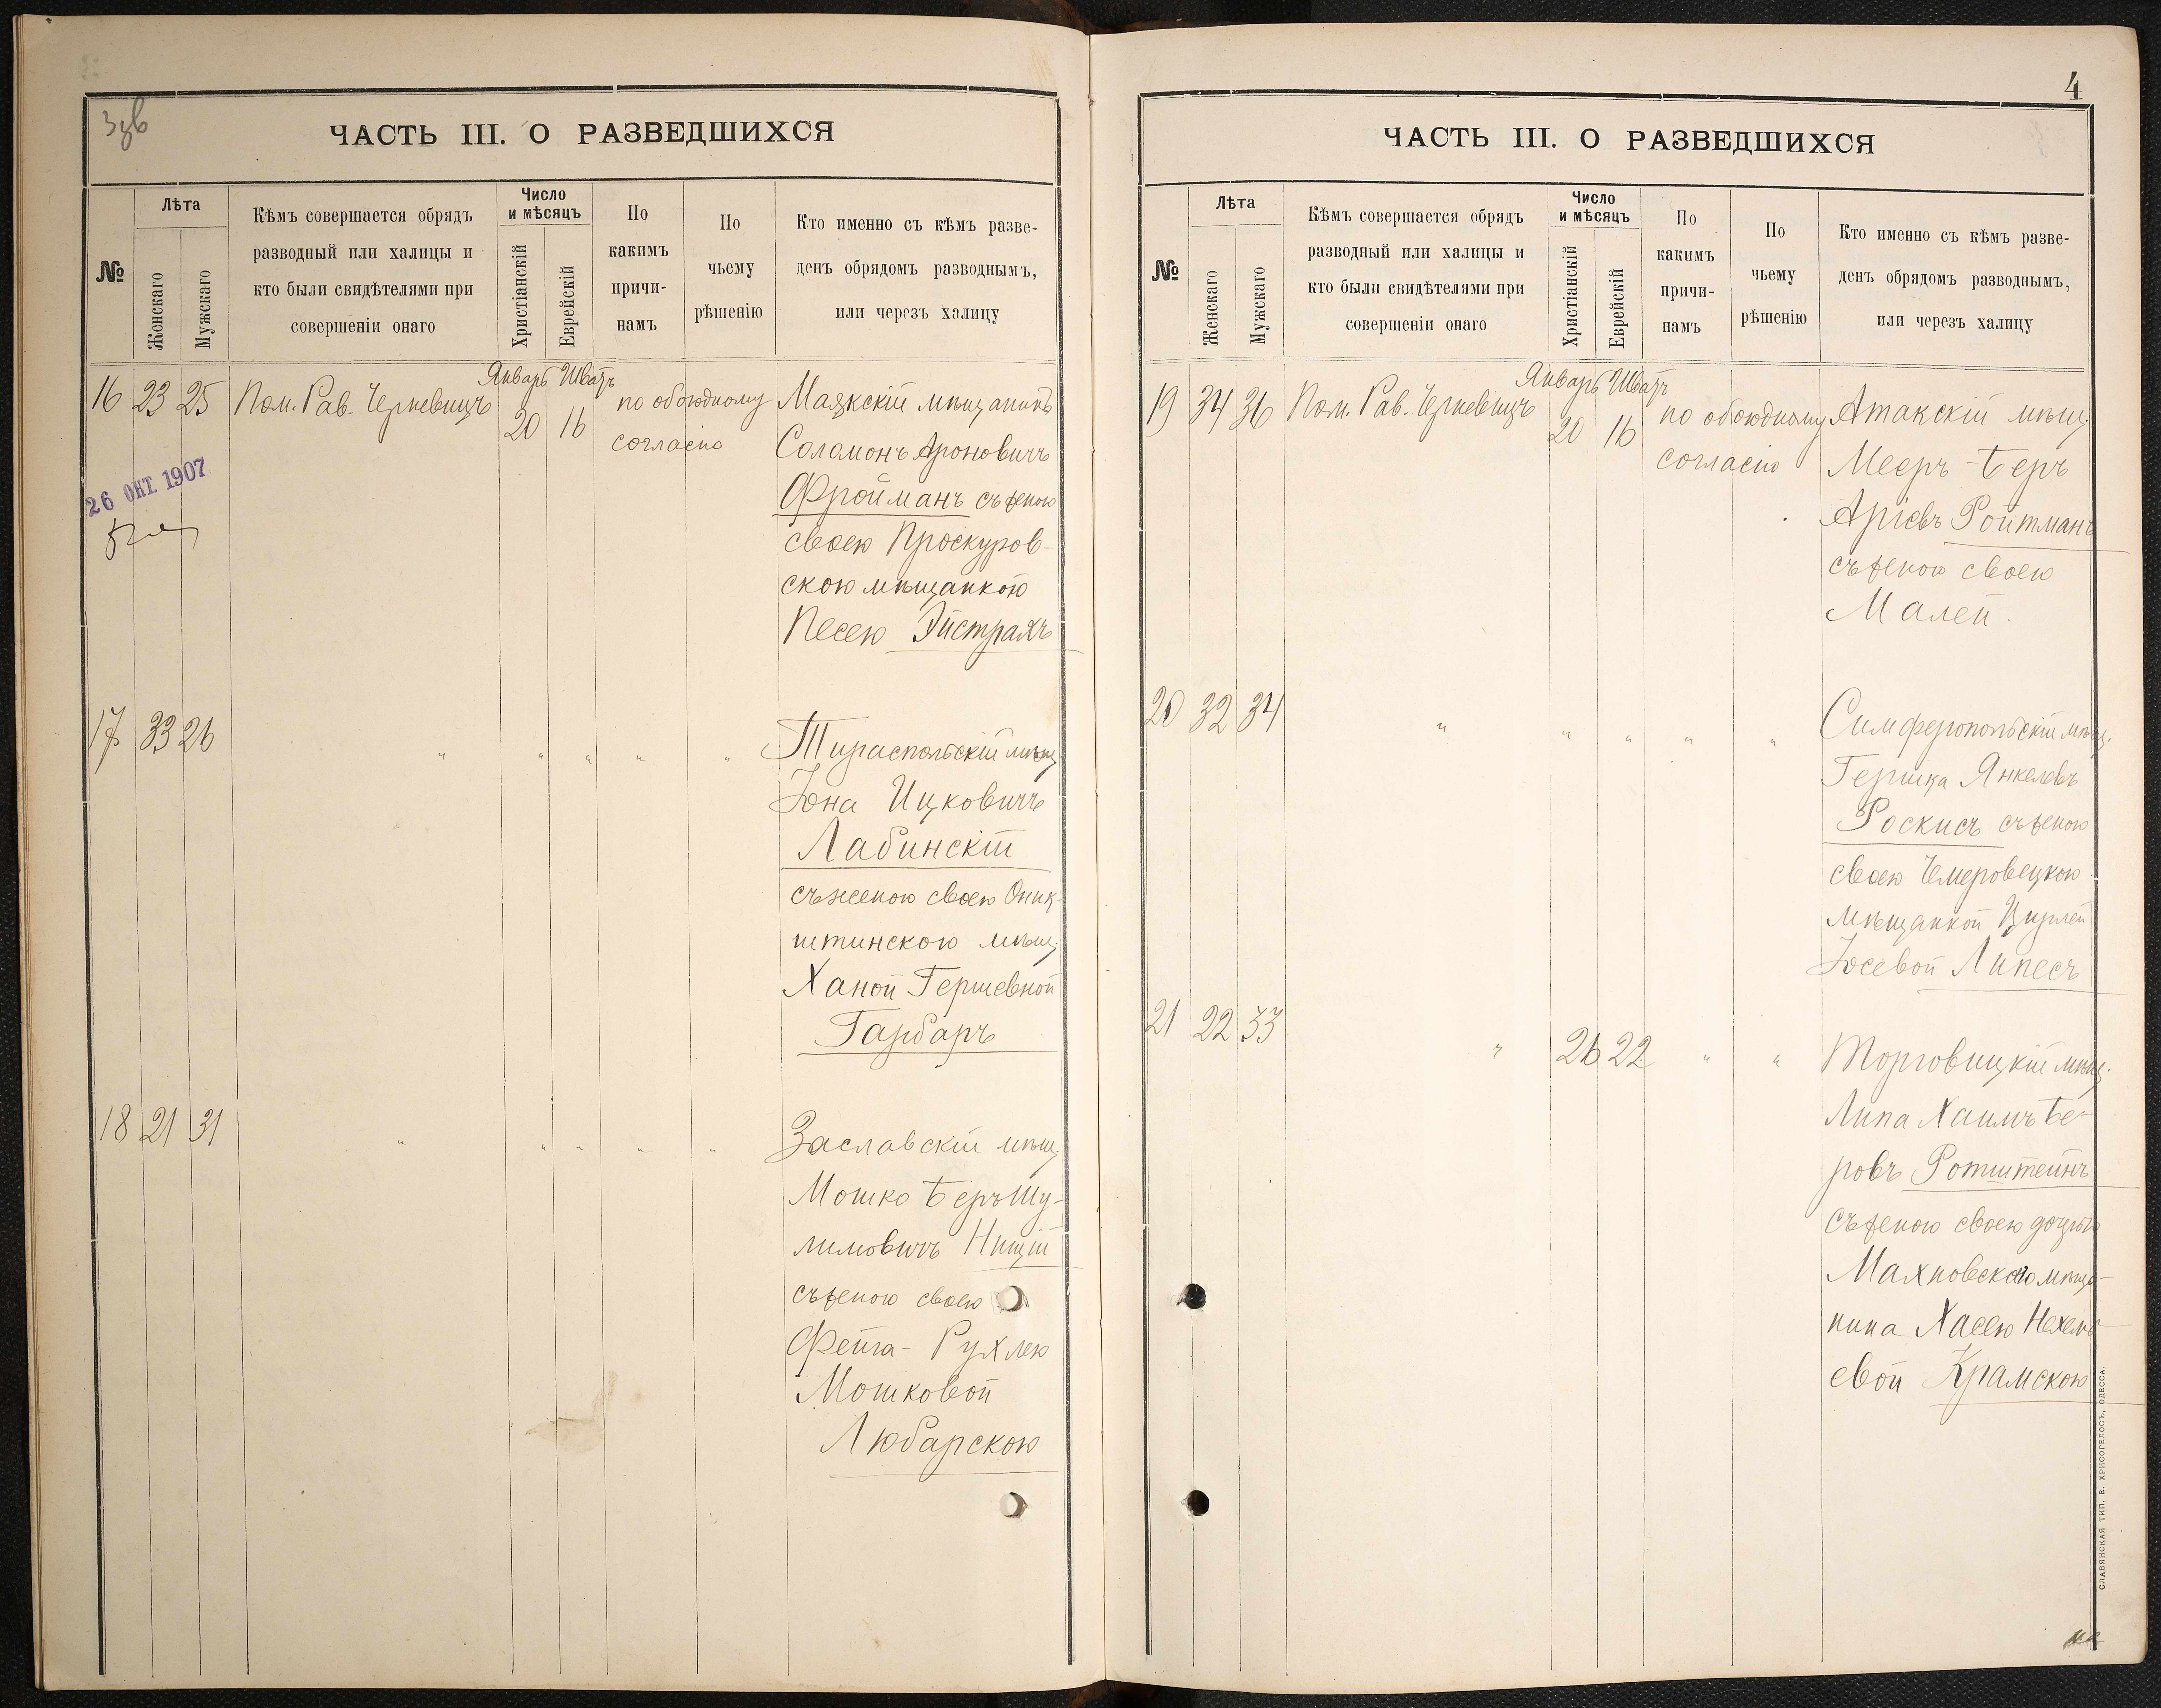 3 зв
ЧАСТЬ III. О РАЗВЕДШИХСЯ
№
Лѣта
Женскаго
Мужскаго
Кѣмъ совершается обрядъ
разводный или халицы и
кто были свидѣтелями при
совершеніи онаго
Число
и мѣсяцъ
Христіанскій
Еврейскій
По
какимъ
причи-
намъ
По
чьему
рѣшенію
Кто именно съ кѣмъ разве-
денъ обрядомъ разводнымъ,
или черезъ халицу
16 23 25 Пом. Рав. Черкевицъ
Январь Шватъ
20 16
по обоюдному
согласію
Маякскій мѣщанинъ
Соломонъ Ароновичъ
Фройманъ съ женою
своею Проскуров-
скою мѣщанкою
Песею Эйстрахъ
26 ОКТ. 1907
17 33 26 " " " " "
Тираспольскій мѣщ.
Іона Ицковичъ
Лабинскій
съ женою своею Оник-
штинскою мѣщ.
Ханой Гершевной
Гарбаръ
18 21 31 " " " " "
Заславскій мѣщ.
Мошко Беръ Шу-
лимовичъ Нищій
съ женою своею
Фейга-Рухлею
Мошковой
Любарскою
4
ЧАСТЬ III. О РАЗВЕДШИХСЯ
№
Лѣта
Женскаго
Мужскаго
Кѣмъ совершается обрядъ
разводный или халицы и
кто были свидѣтелями при
совершеніи онаго
Число
и мѣсяцъ
Христіанскій
Еврейскій
По
какимъ
причи-
намъ
По
чьему
рѣшенію
Кто именно съ кѣмъ разве-
денъ обрядомъ разводнымъ,
или черезъ халицу
19 34 36 Пом. Рав. Черкевицъ
Январь Шватъ
20 16
по обоюдному
согласію
Атакскій мѣщ.
Мееръ-Беръ
Аріевъ Ройтманъ
съ женою своею
Малей.
20 32 34 " " " " "
Симферопольскій мѣщ.
Гершка Янкелевъ
Роскисъ съ женою
своею Чемеровецкою
мѣщанкой Цирлей
Іосевой Липесъ
21 22 33 " 26 22 " "
Торговицкій мѣщ.
Липа Хаимъ Бе-
ровъ Ротштейнъ
съ женою своею дочерью
Махновскаго мѣща-
нина Хасею Нехемь-
евой Крамскою
СЛАВЯНСКАЯ ТИП. Е. ХРИСОГЕЛОСЪ, ОДЕССА.